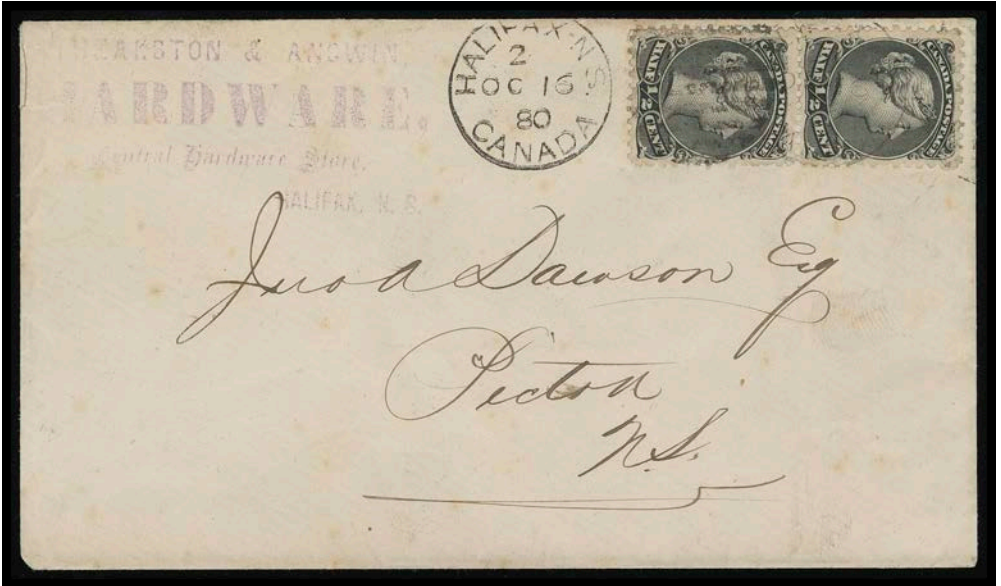 & ANGWIN,
HARDWARE.
Central Hardware Store,
HALIFAX, N. S.
HALIFAX · N.S
2
OC 16
80
CANADA
CANADA POSTAGE
HALF 1/2 CENT
CANADA POSTAGE
HALF 1/2 CENT
Jno A Dawson Esq
Pictou
N.S.